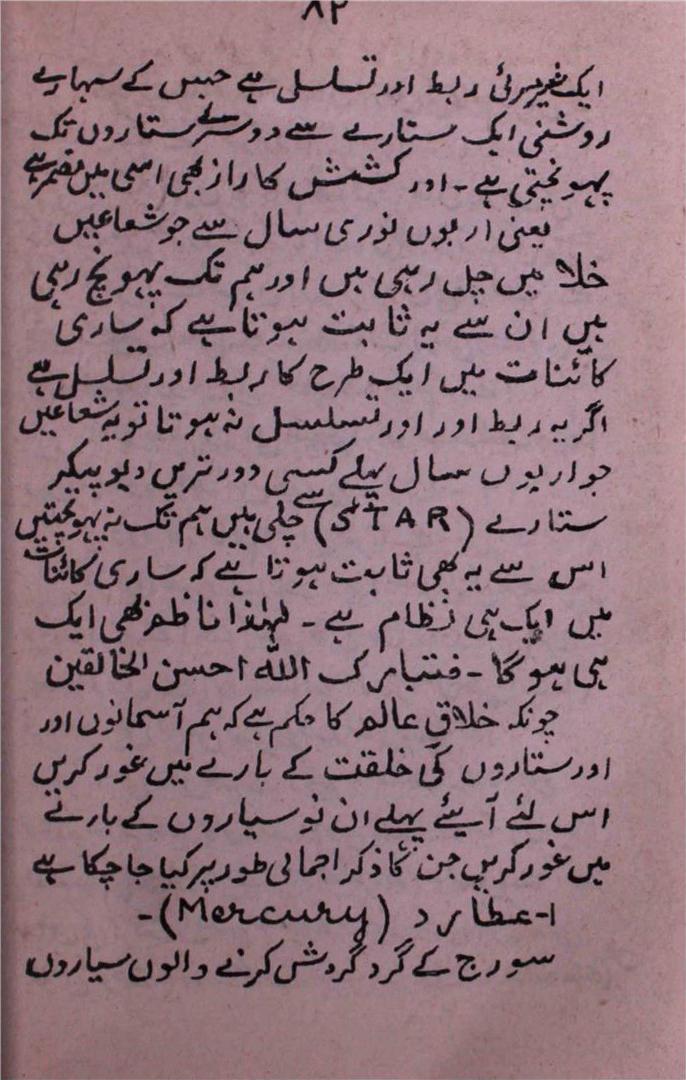 ۸۲
ایک غیر مرئی ربط اور تسلسل ہے جس کے سہارے
روشنی ایک ستارے سے دوسرے ستاروں تک
پہونچتی ہے ۔ اور کشش کا راز بھی اسی میں مضمر ہے
یعنی اربوں نوری سال سے جو شعاعیں
خلا میں چل رہی ہیں اور ہم تک پہونچ رہی
ہیں ان سے یہ ثابت ہوتا ہے کہ ساری
کائنات میں ایک طرح کا ربط اور تسلسل ہے
اگر یہ ربط اور اور تسلسل نہ ہوتا تو یہ شعاعیں
جو اربوں سال پہلے کسی دور ترین دیو پیکر
ستارے (STAR) سے چلی ہیں ہم تک نہ پہونچتیں
اس سے یہ بھی ثابت ہوتا ہے کہ ساری کائنات
میں ایک ہی نظام ہے ۔ لہٰذا ناظم بھی ایک
ہی ہو گا ۔ فتبارک اللہ احسن الخالقین
چونکہ خلاق عالم کا حکم ہے کہ ہم آسمانوں اور
اور ستاروں کی خلقت کے بارے میں غور کریں
اس لئے آیئے پہلے ان نو سیاروں کے بارے
میں غور کریں جن کا ذکر اجمالی طور پر کیا جا چکا ہے
۱- عطارد (Mercury) ۔
سورج کے گرد گردش کرنے والوں سیاروں